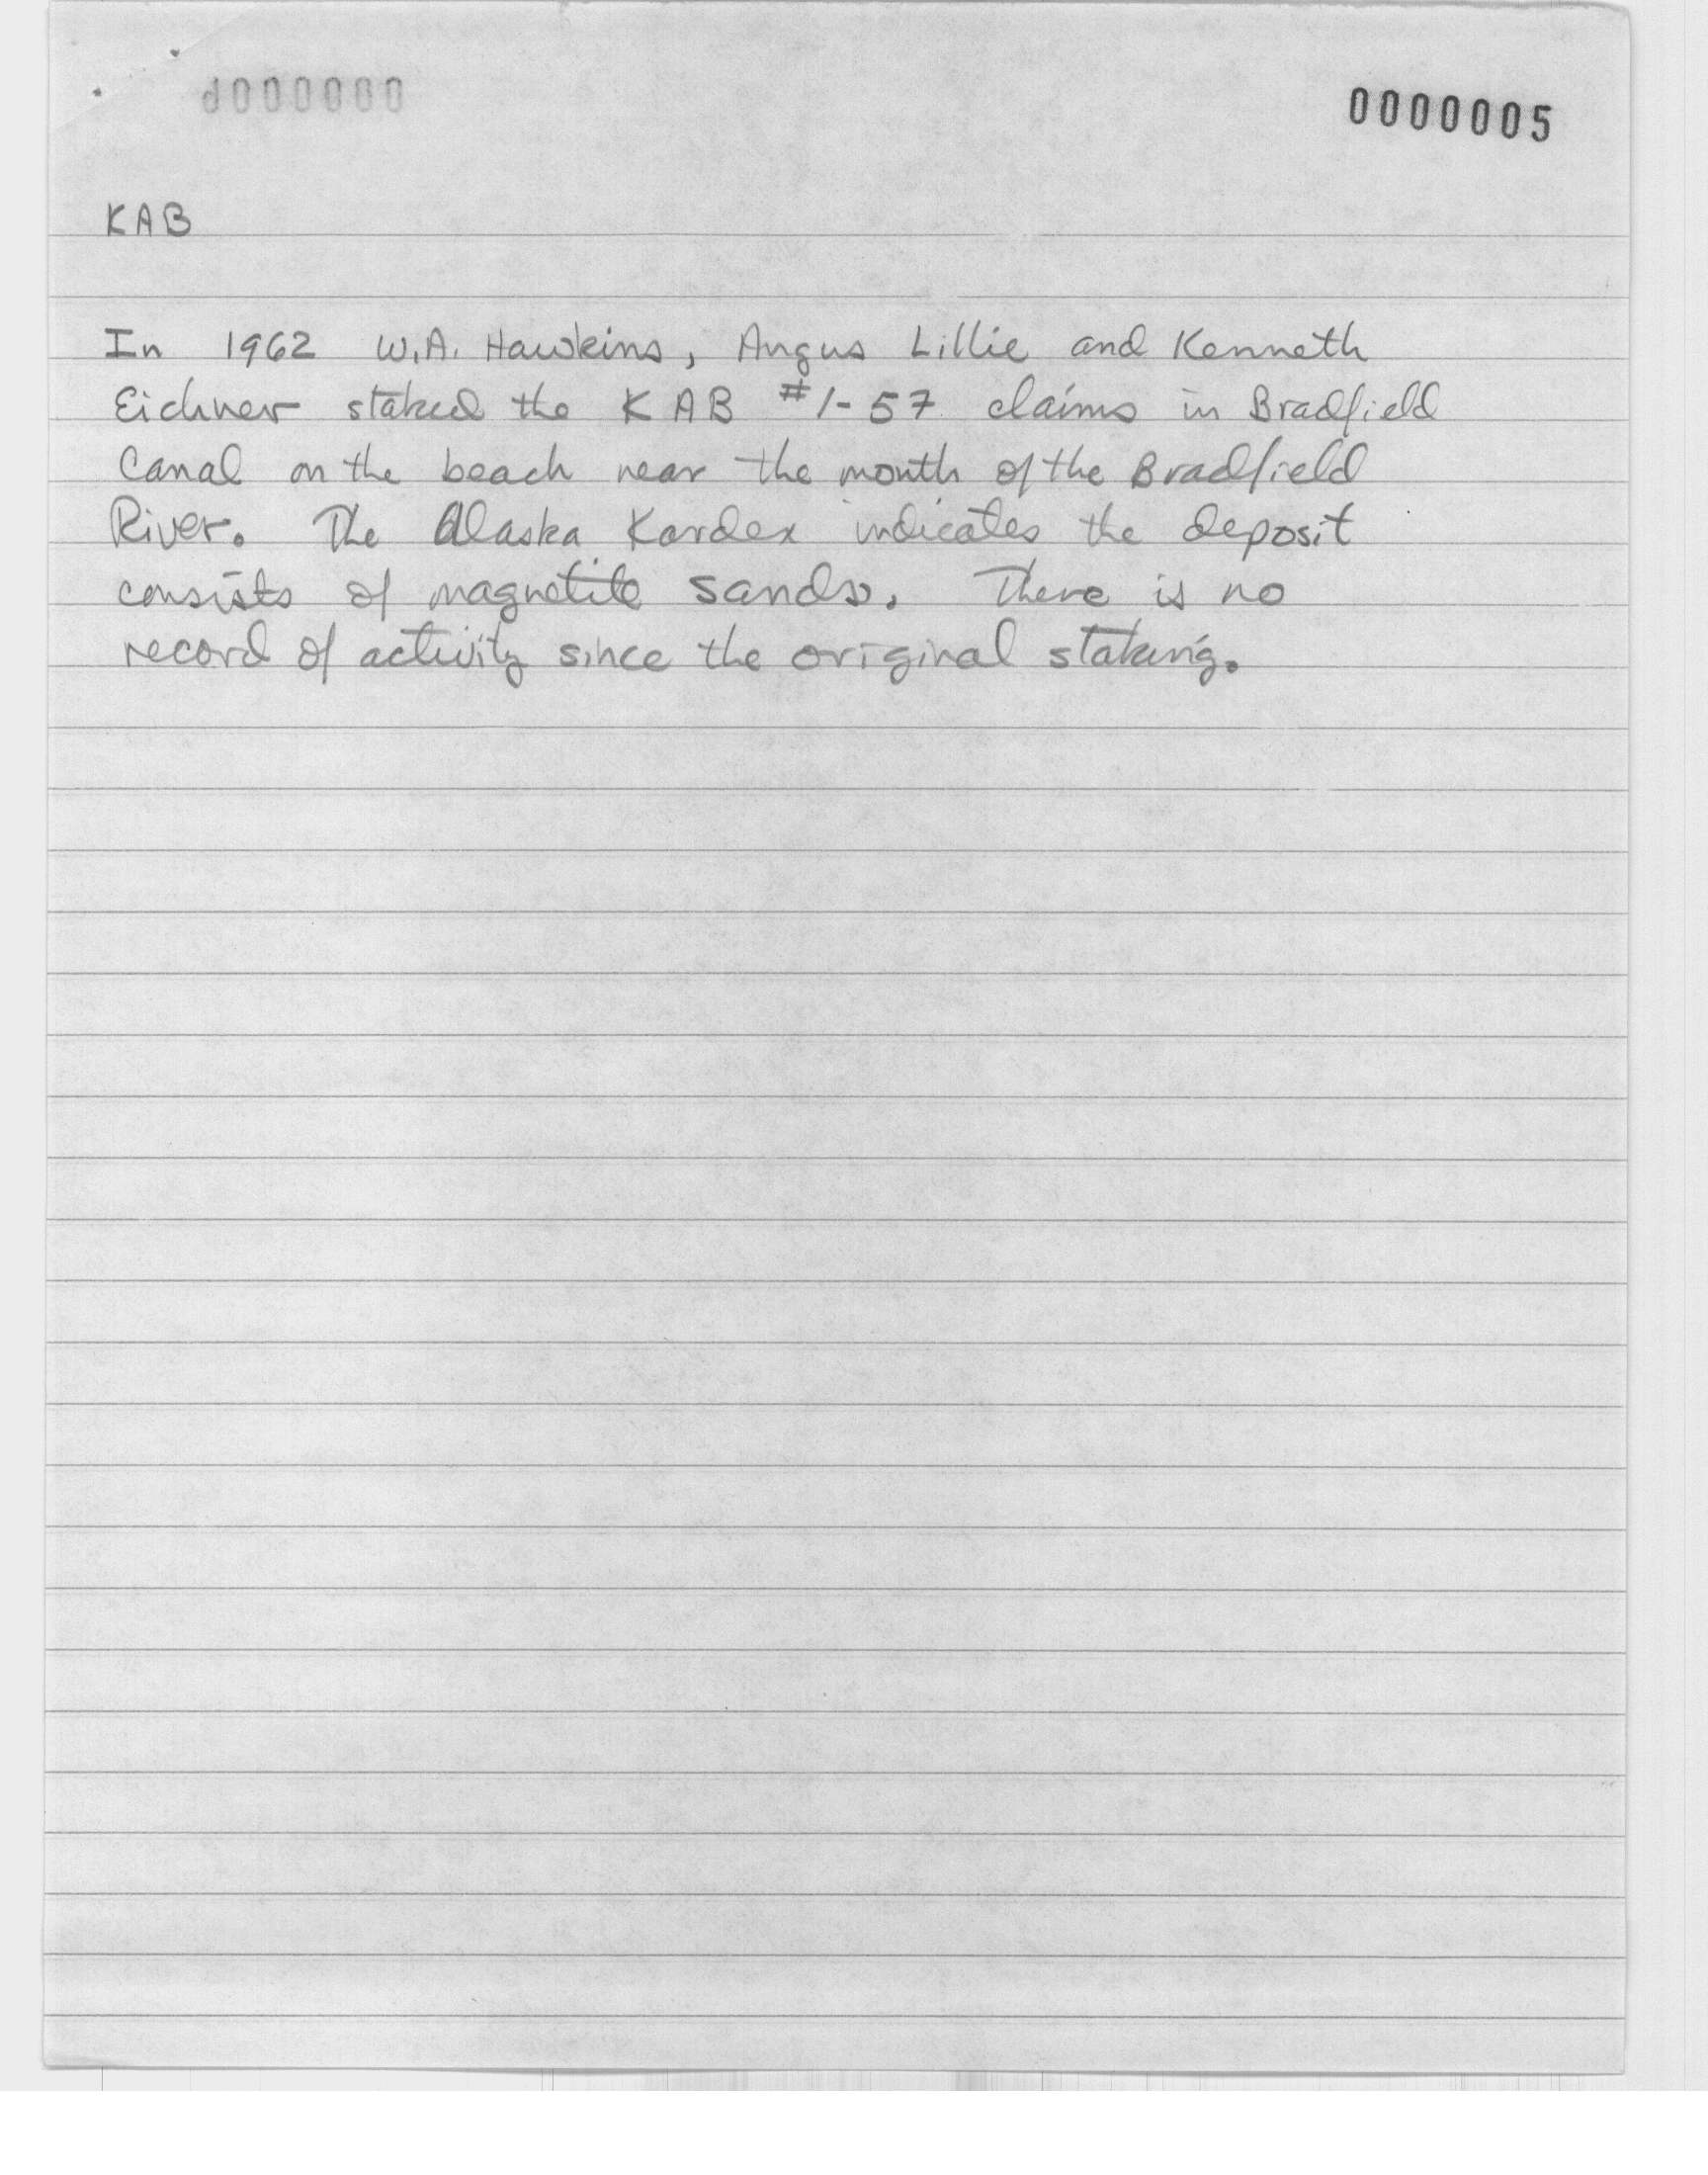 0000005
KAB
In 1962 W.A. Hawkins, Angus Lillie and Kenneth
Eichner staked the KAB #1-57 claims in Bradfield
Canal on the beach near the mouth of the Bradfield
River. The Alaska Kardex indicates the deposit
consists of magnetite sands. There is no
record of activity since the original staking.